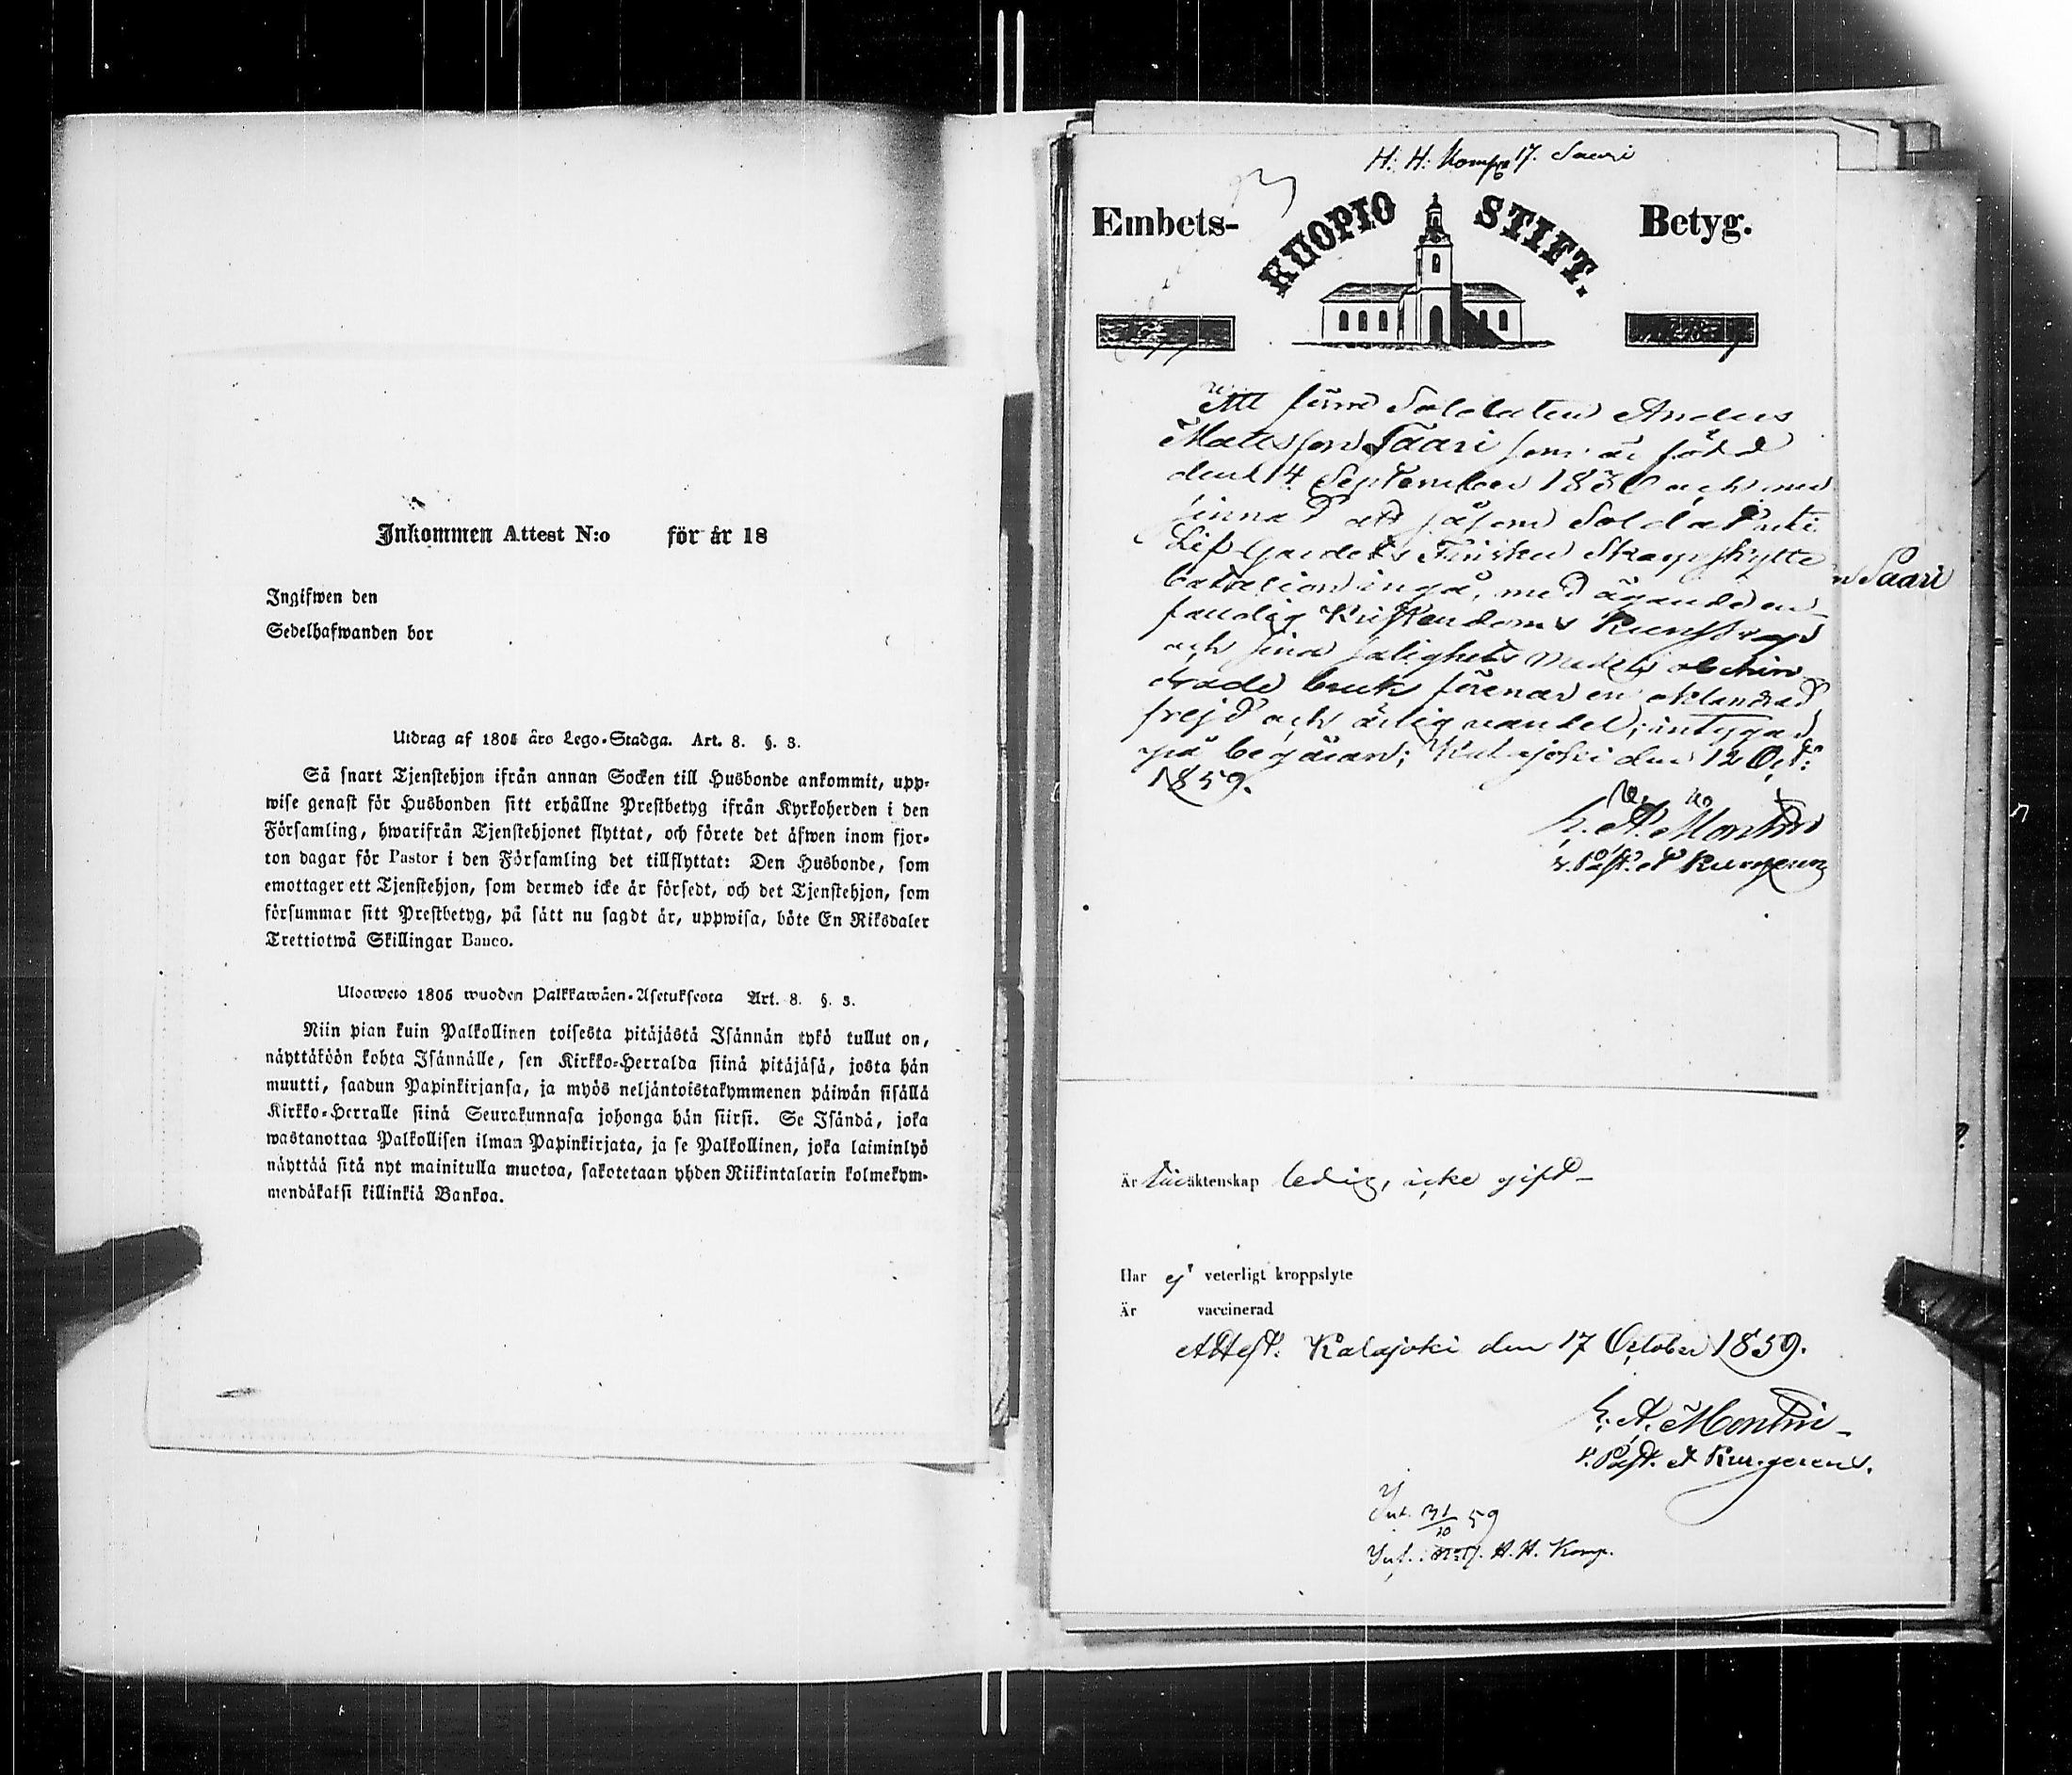 Inkommen Attest N:o för år 18
Ingifwen den
Sedelhafwanden bor
Utdrag af 1805 års Lego-Stadga. Art. 8. §. 3.
Så snart Tjenstehjon ifrån annan Socken till Husbonde ankommit, upp-
wise genast för Husbonden sitt erhållne Prestbetyg ifrån Kyrkoherden i den
Församling, hwarifrån Tjenstehjonet flyttat, och förete det äfwen inom fjor-
ton dagar för Pastor i den Församling det tillflyttat: Den Husbonde, som
emottager ett Tjenstehjon, som dermed icke är försedt, och det Tjenstehjon, som
försummar sitt Prestbetyg, på sätt nu sagdt är, uppwisa, böte En Riksdaler
Trettiotwå Skillingar Banco.
Ulosweto 1805 wuoden Palkkawäen-Asetuksesta Art. 8. §. 3.
Niin pian kuin Palkollinen toisesta pitäjästä Isännän tykö tullut on,
näyttäköön kohta Isännälle, sen Kirkko-Herralda siinä pitäjäsä, josta hän
muutti, saadun Papinkirjansa, ja myös neljäntoistakymmenen päiwän sisällä
Kirkko-Herralle siinä Seurakunnasa johonga hän siirsi. Se Isändä, joka
wastanottaa Palkollisen ilman Papinkirjata, ja se Palkollinen, joka laiminlyö
näyttää sitä nyt mainitulla muotoa, sakotetaan yhden Riikintalarin kolmekym-
mendäkaksi killinkiä Bankoa.
H. H. Komp 17. Saari
Embets- KUOPIO STIFT. Betyg.
Att förre Soldaten Anders
Mattsson Saari som är född
den 14 September 183 och nu
sinnad att såsom Soldat uti
Lif Gardets Finska Skarpskytte
bataljon ingå, med ägande en
Kristendoms Kunskap
och sina salighets medels obehin-
drade bruk förenar en oklandrad
frejd och ärlig vandel; intygar
på begäran; Kalajoki den 12 Oct:
1859.
A. Montin
v. Past. et
Saari
Är äktenskap ledig, icke gift
Har ej veterligt kroppslyte
Är vaccinerad
Attest. Kalajoki den 17 October 1859.
A. Montin
v. Past. et
Int. 31/10 59
H. H. Komp.